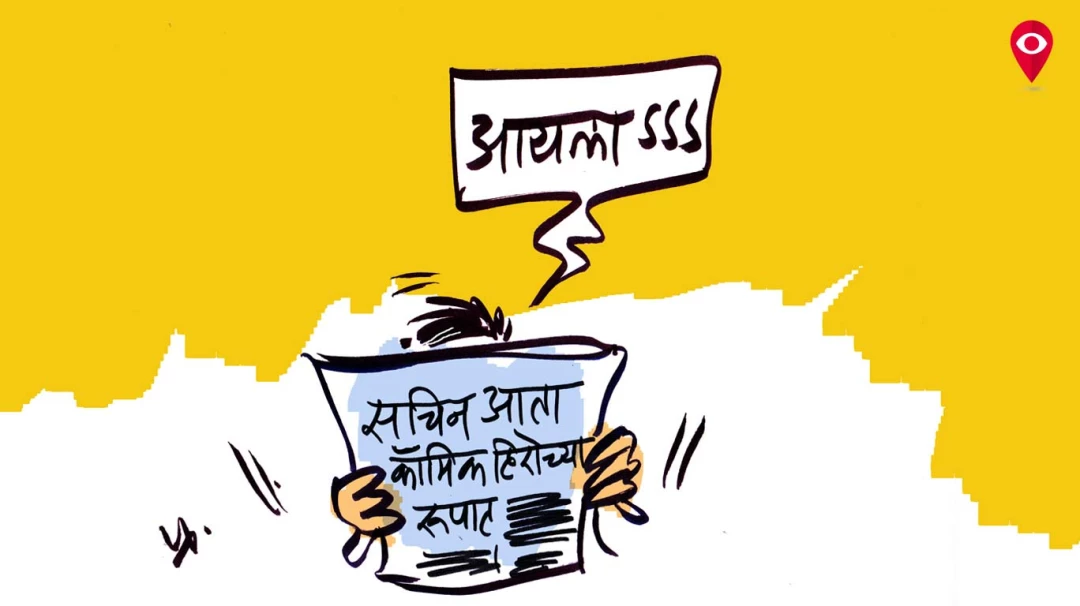 आयला ऽऽऽ
सचिन आता
कॉमिक हिरोच्या
रूपात